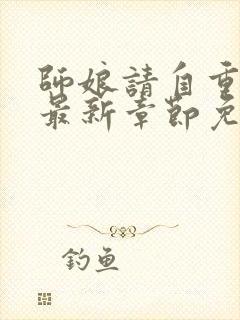 師娘請自重
最新章節免
釣魚